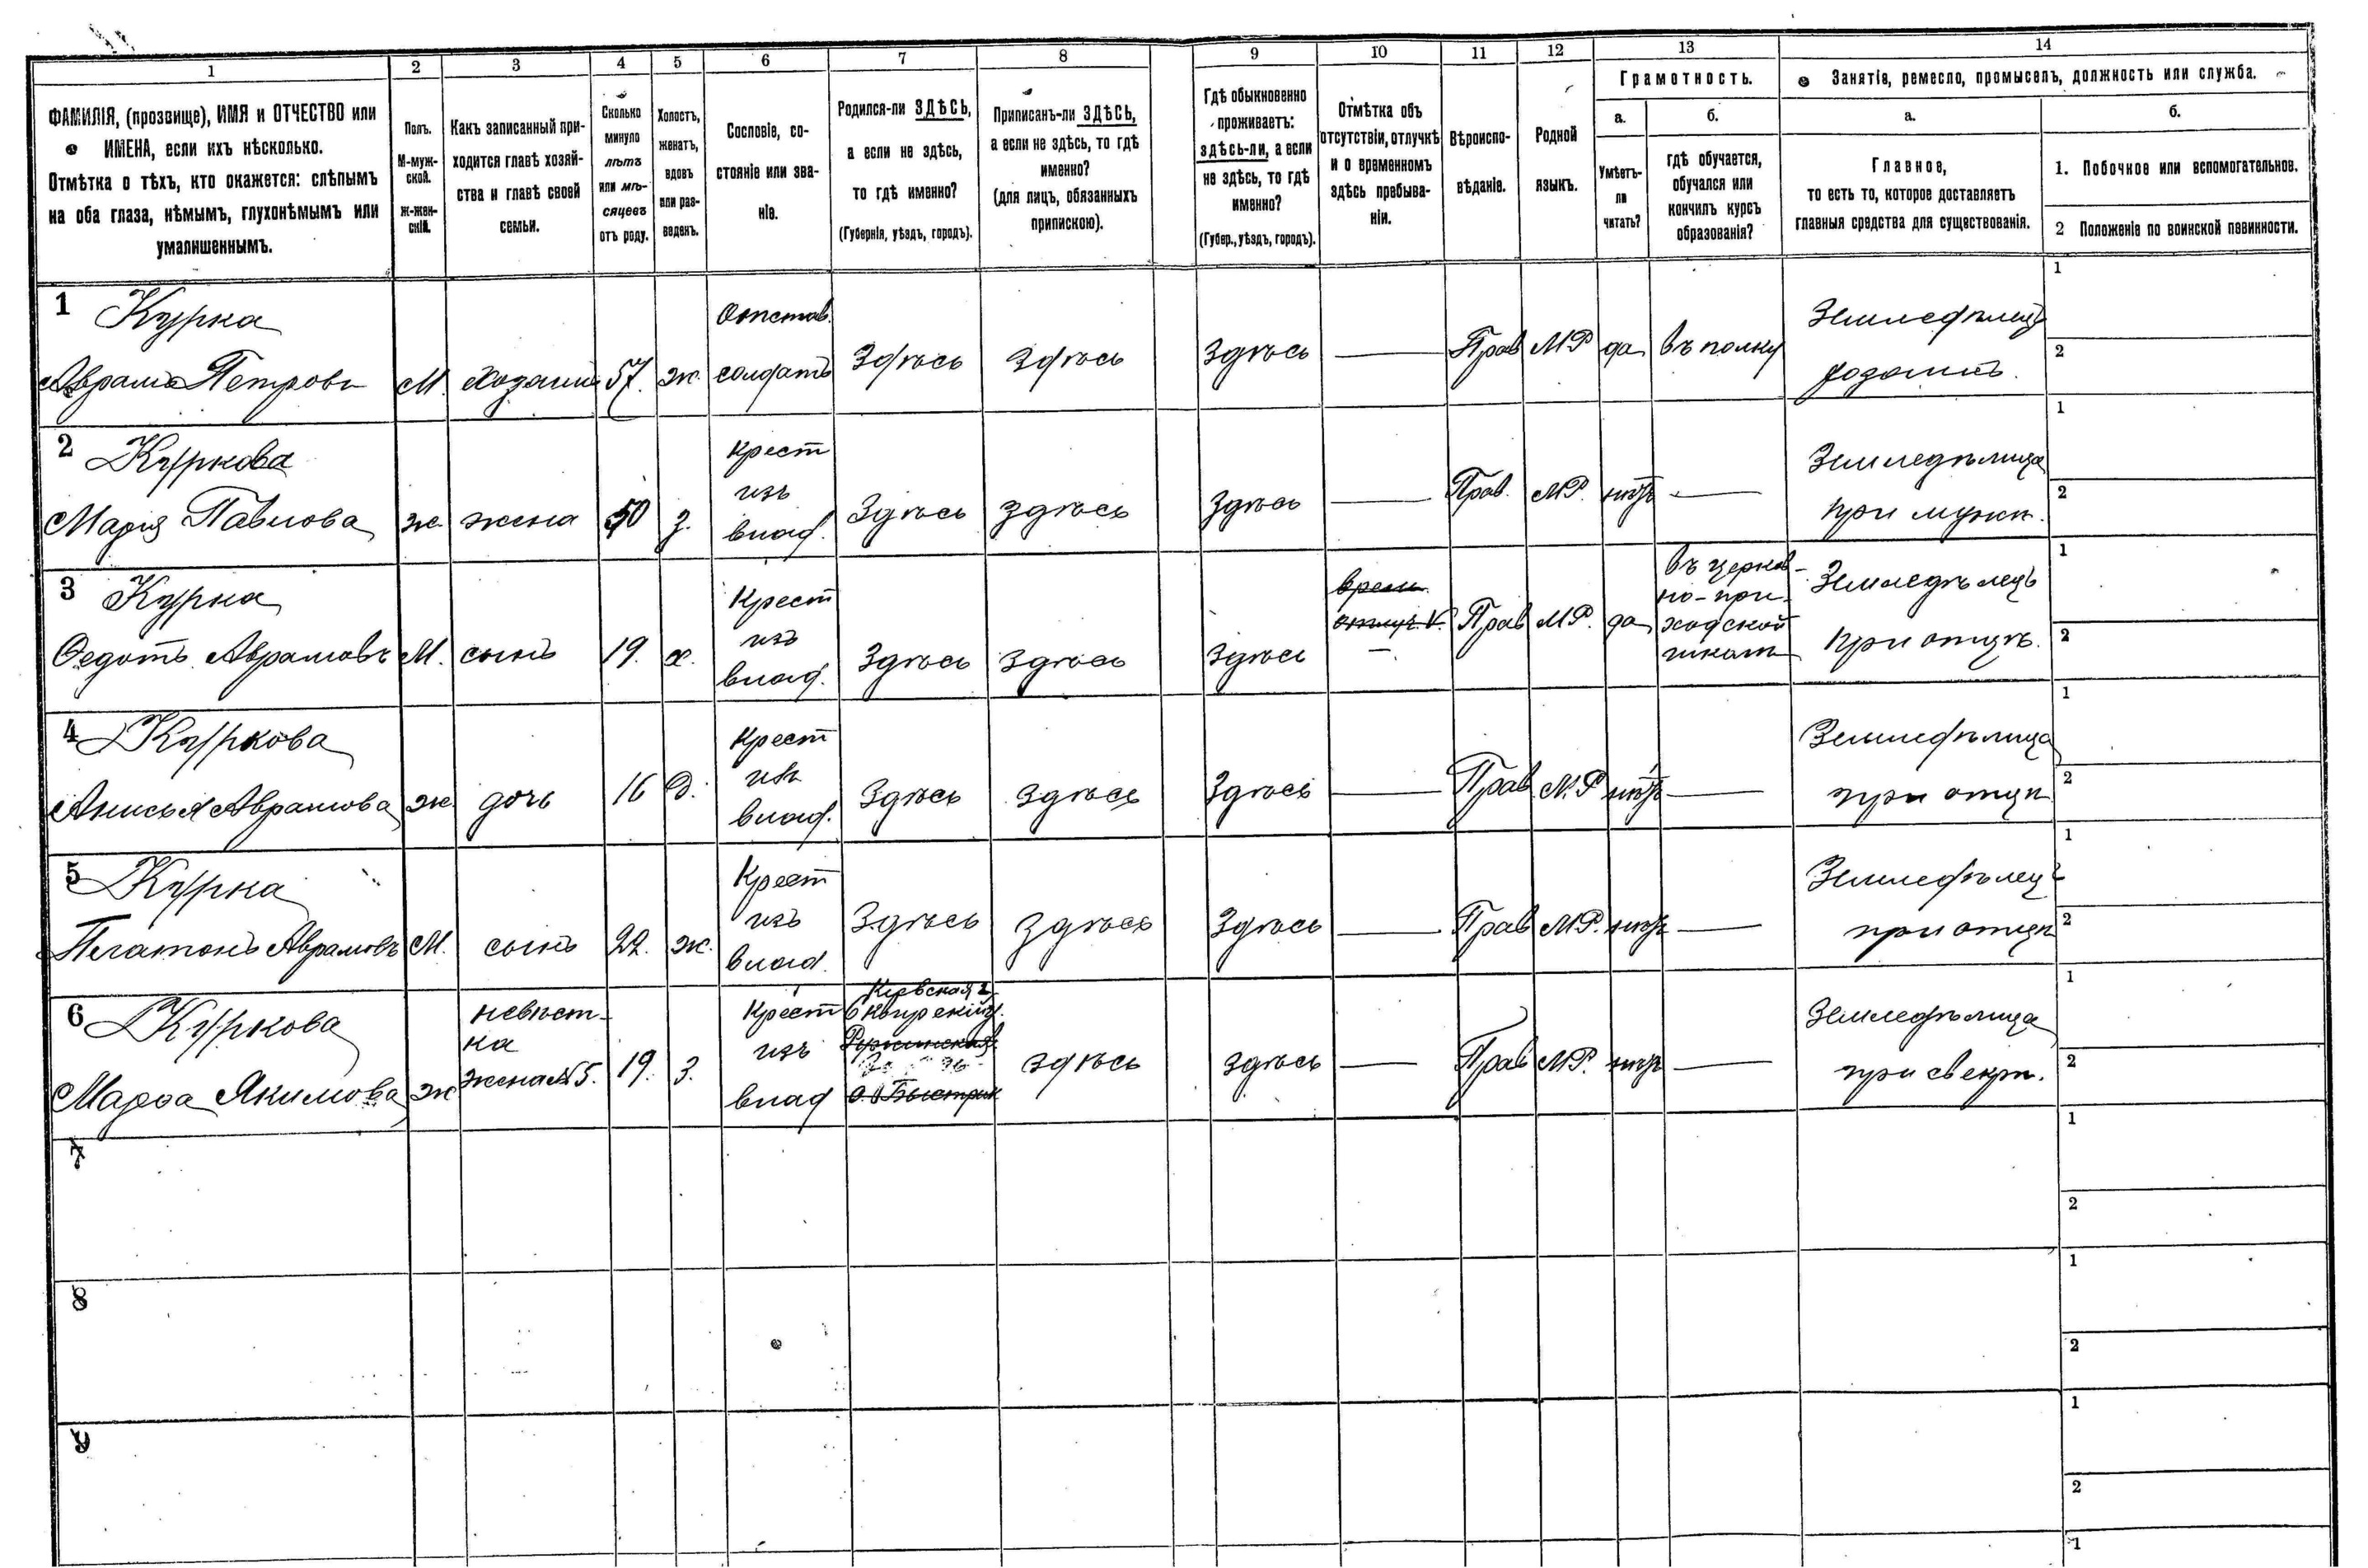 1 2 3 4 5 6 7 8 9 10 11 12 13 14
ФАМИЛІЯ, (прозвище), ИМЯ и ОТЧЕСТВО или
ИМЕНА, если ихъ нѣсколько.
Отмѣтка о тѣхъ, кто окажется: слѣпымъ
на оба глаза, нѣмымъ, глухонѣмымъ или
умалишеннымъ.
Полъ.
М-муж-
ской.
Ж-жен-
скій.
Какъ записанный при-
ходится главѣ хозяй-
ства и главѣ своей
семьи.
Сколько
минуло
лѣтъ
или мѣ-
сяцевъ
отъ роду.
Холостъ,
женатъ,
вдовъ
или раз-
веденъ.
Сословіе, со-
стояніе или зва-
ніе.
Родился-ли ЗДѢСЬ,
а если не здѣсь,
то гдѣ именно?
(Губернія, уѣздъ, городъ).
Приписанъ-ли ЗДѢСЬ,
а если не здѣсь, то гдѣ
именно?
(для лицъ, обязанныхъ
припискою).
Гдѣ обыкновенно
проживаетъ:
здѣсь-ли, а если
не здѣсь, то гдѣ
именно?
(Губер., уѣздъ, городъ).
Отмѣтка объ
отсутствіи, отлучкѣ
и о временномъ
здѣсь пребыва-
ніи.
Вѣроиспо-
вѣданіе.
Родной
языкъ.
Грамотность.
а.
Умѣетъ-
ли
читать?
б.
гдѣ обучается,
обучался или
кончилъ курсъ
образованія?
Занятіе, ремесло, промыселъ, должность или служба.
а.
Главное,
то есть то, которое доставляетъ
главныя средства для существованія.
б.
1. Побочное или вспомогательное.
2 Положеніе по воинской повинности.
1 Курка
Аврамъ Петровъ
М.
Хозяинъ
57.
ж.
Отстав.
солдатъ
Здѣсь
Здѣсь
Здѣсь
—
Прав
МР
да
въ полку
Земледѣлецъ
хозяинъ.
1
2
2 Куркова
Мария Павлова
ж.
жена
50
з.
крест
изъ
влад.
Здѣсь
здѣсь
здѣсь
—
Прав.
МР.
нѣтъ
—
Земледѣлица
при мужѣ.
1
2
3 Курка
Ѳедотъ Аврамовъ
М.
сынъ
19.
х.
Крест
изъ
влад.
Здѣсь
Здѣсь
Здѣсь
времен.
отлуч. V.
—
Прав
МР.
да
въ церков-
но-при-
ходской
школѣ
Земледѣлецъ
при отцѣ.
1
2
4 Куркова
Анисья Аврамова
ж.
дочь
16
Д.
Крест
изъ
влад.
Здѣсь
Здѣсь
Здѣсь
—
Прав
М.Р
нѣтъ
—
Земледѣлица
при отцѣ
1
2
5 Курка
Платонъ Аврамовъ
М.
сынъ
22.
ж.
Крест
изъ
влад.
Здѣсь
здѣсь
Здѣсь
—
Прав
МР.
нѣтъ
—
Земледѣлецъ
при отцѣ
1
2
6 Куркова
Марѳа Якимова
ж
невѣст-
ка
жена №5.
19.
З.
Крест
изъ
влад
Кіевская г.
Сквирскій у.
Ружинская
с. Быстрик
здѣсь
здѣсь
—
Прав
МР.
нѣтъ
—
Земледѣлица
при свекрѣ.
1
2
7
1
2
8
1
2
9
1
2
1